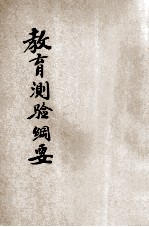 教育測驗綱要